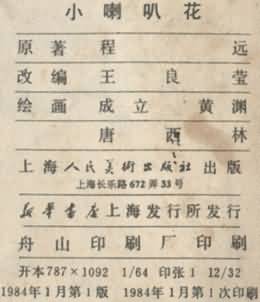 小喇叭花
原著程远
改编王良莹
绘画成立黄渊
唐酉林
上海人民美術出版社出版
上海长乐路672弄33号
新华書店上海发行所发行
舟山印刷厂印刷
开本787×1092 1/64 印张1 12/32
1984年1月第1版 1984年1月第1次印刷